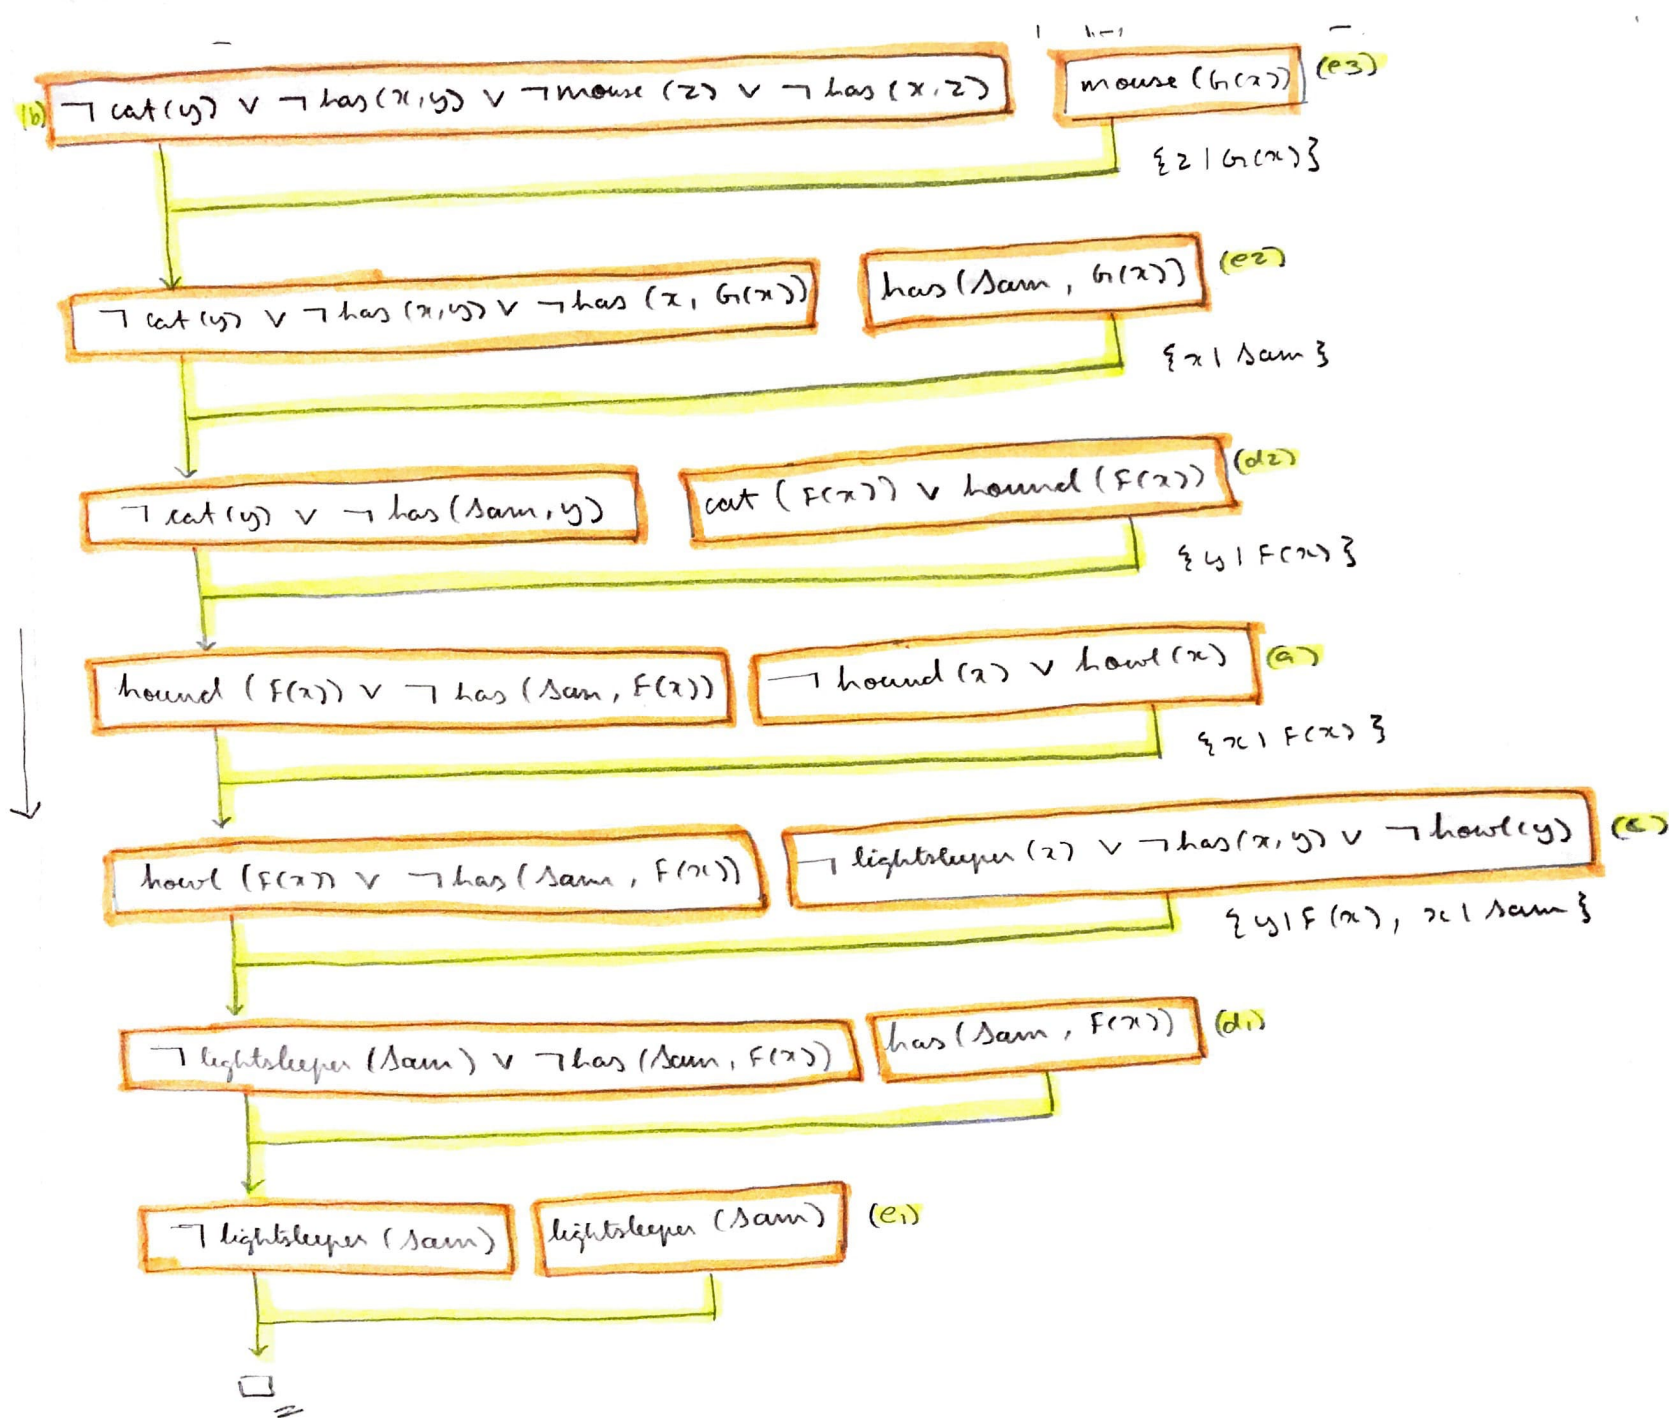 (b) ¬ cat(y) ∨ ¬ has(x,y) ∨ ¬ mouse (z) ∨ ¬ has(x,z) mouse (G(x)) (e3)
{z | G(x)}
¬ cat(y) ∨ ¬ has(x,y) ∨ ¬ has (x, G(x)) has(Sam, G(x)) (e2)
{x | Sam}
¬ cat(y) ∨ ¬ has(Sam,y) cat (F(x)) ∨ hound (F(x)) (d2)
{y | F(x)}
hound (F(x)) ∨ ¬ has (Sam, F(x)) ¬ hound (x) ∨ howl (x) (a)
{x | F(x)}
howl (F(x)) ∨ ¬ has (Sam, F(x)) ¬ lightsleeper (x) ∨ ¬ has(x,y) ∨ ¬ howl(y) (c)
{y | F(x), x | Sam}
¬ lightsleeper (Sam) ∨ ¬ has (Sam, F(x)) has (Sam, F(x)) (d1)
¬ lightsleeper (Sam) lightsleeper (Sam) (e1)